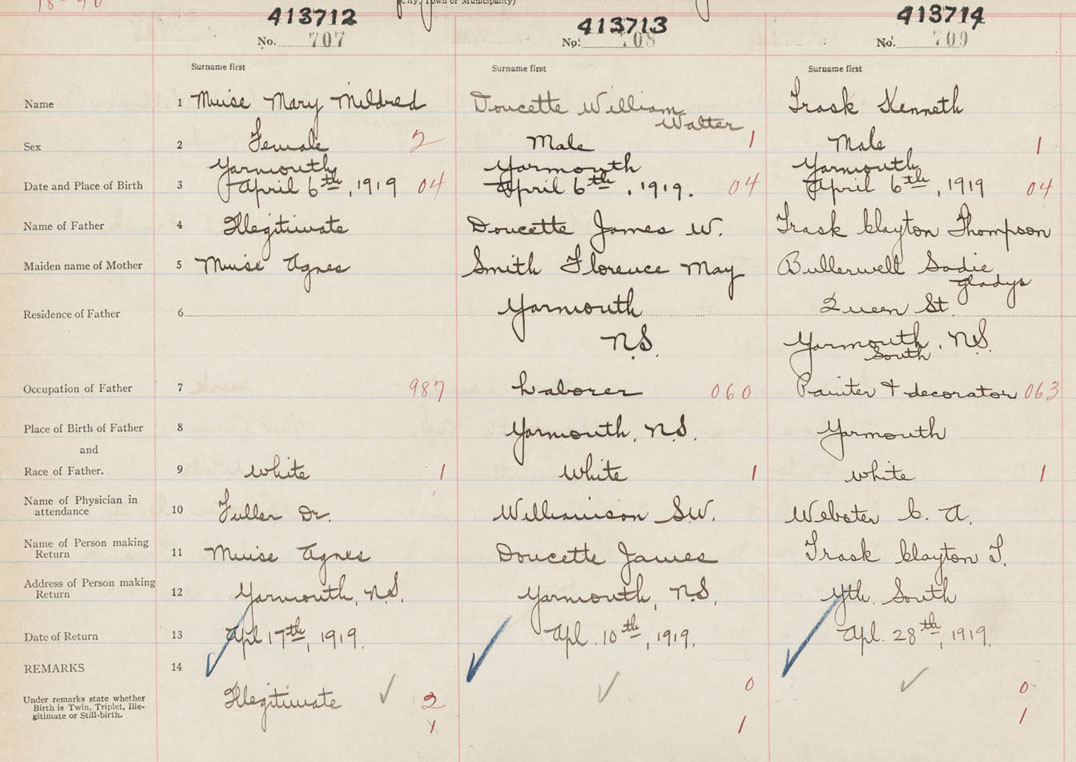 18-90
(City, Town or Municipality)
413712 413713 413714
No. 707 No. 708 No. 709
Surname first Surname first Surname first
Name 1 Muise Mary Mildred Doucette William Walter Trask Kenneth
Sex 2 Female 2 Male 1 Male 1
Yarmouth Yarmouth Yarmouth
Date and Place of Birth 3 April 6th, 1919 04 April 6th, 1919. 04 April 6th, 1919 04
Name of Father 4 Illegitimate Doucette James W. Trask Clayton Thompson
Maiden name of Mother 5 Muise Agnes Smith Florence May Bullerwell Sadie Gladys
Residence of Father 6 Yarmouth Queen St.
N.S. Yarmouth South, N.S.
Occupation of Father 7 987 Laborer 060 Painter & decorator 063
Place of Birth of Father 8 Yarmouth, N.S. Yarmouth
and
Race of Father. 9 white 1 White 1 white 1
Name of Physician in attendance 10 Fuller Dr. Williamson S.W. Webster C. A.
Name of Person making Return 11 Muise Agnes Doucette James Trask Clayton T.
Address of Person making Return 12 Yarmouth, N.S. Yarmouth, N.S. Yth. South
Date of Return 13 Apl 17th, 1919. Apl. 10th, 1919. Apl. 28th, 1919.
REMARKS 14
Under remarks state whether Birth is Twin, Triplet, Illegitimate or Still-birth. Illegitimate 2 0 0
1 1 1